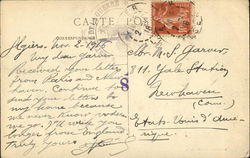 CARTE POSTALE
CORRESPONDANCE
Algiers, Nov. 2, 1916
My dear Garver
Received your letter
from Paris and New
haven. Continue to
send your letters to
my home because
we never know where
we go. I'll write you
longer from England
Truly Yours
8
Mr M. S. Garver
811 Yale Station
New haven
(Conn.)
Etats-Unis d'Amé-
rique.